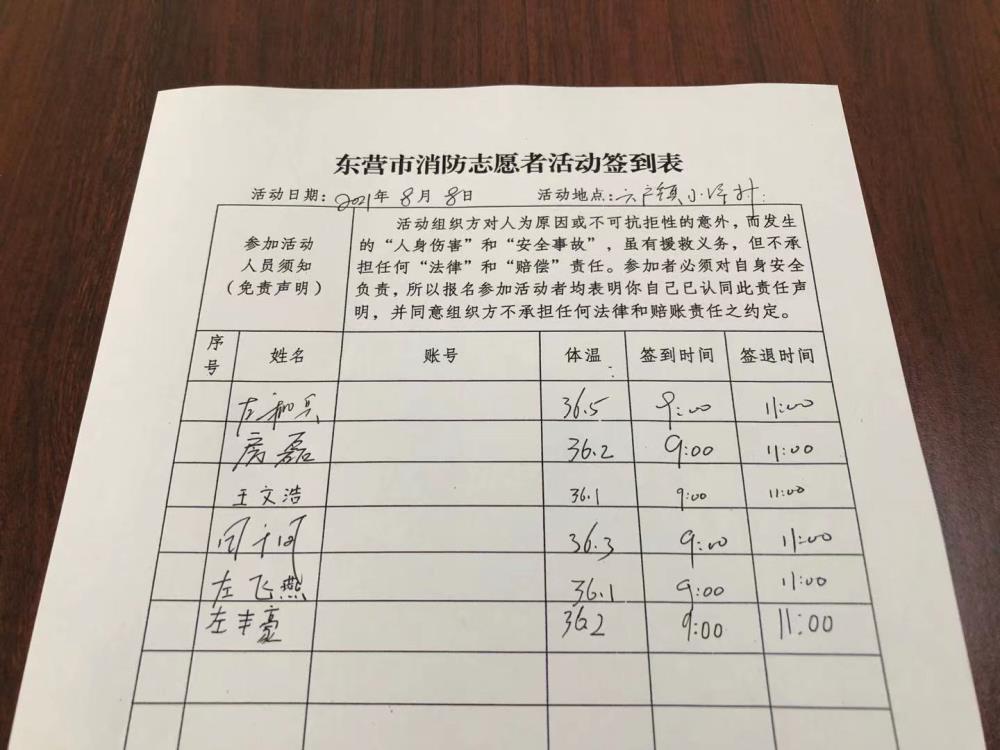 东营市消防志愿者活动签到表
活动日期：2021年 8月 8日 活动地点：六户镇小
参加活动
人员须知
（免责声明）
活动组织方对人为原因或不可抗拒性的意外，而发生
的“人身伤害”和“安全事故”，虽有援救义务，但不承
担任何“法律”和“赔偿”责任。参加者必须对自身安全
负责，所以报名参加活动者均表明你自己已认同此责任声
明，并同意组织方不承担任何法律和赔账责任之约定。
序号 姓名 账号 体温 签到时间 签退时间
左 36.5 9:00 11:00
房磊 36.2 9:00 11:00
王文浩 36.1 9:00 11:00
36.3 9:00 11:00
左飞燕 36.1 9:00 11:00
左丰豪 36.2 9:00 11:00